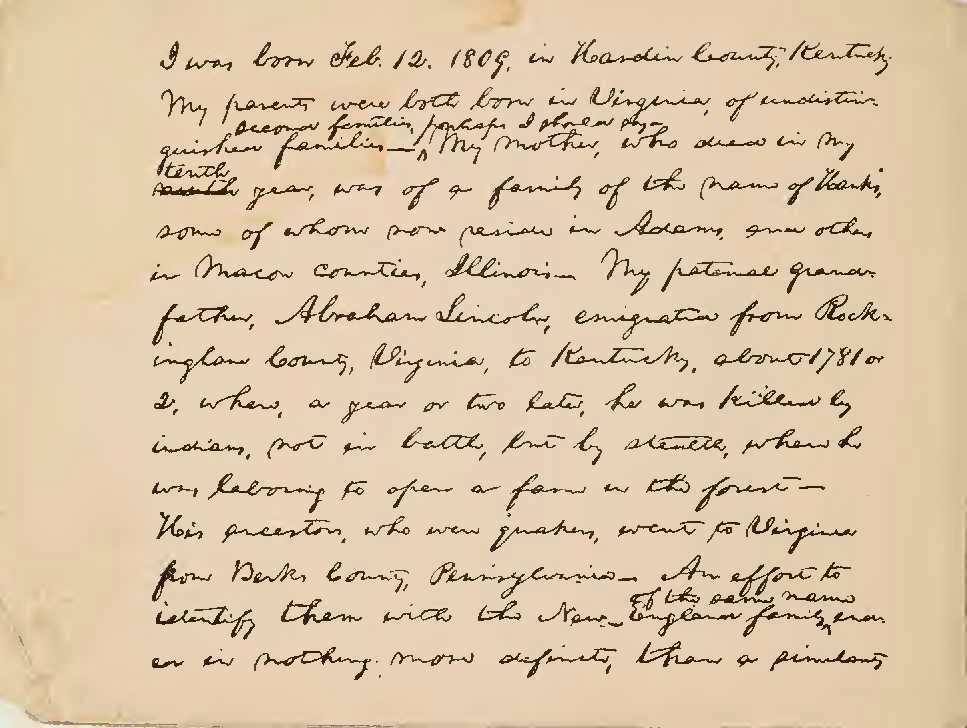 I was born Feb. 12. 1809, in Hardin County, Kentucky.
My parents were both born in Virginia, of undistin-
second families, perhaps I should say—
guished families— ^ My mother, who died in my
tenth
ninth year, was of a family of the name of Hanks,
some of whom now reside in Adams, and others
in Macon counties, Illinois— My paternal grand-
father, Abraham Lincoln, emigrated from Rock-
ingham County, Virginia, to Kentucky, about 1781 or
2, where, a year or two later, he was killed by
indians, not in battle, but by stealth, when he
was laboring to open a farm in the forest—
His ancestors, who were quakers, went to Virginia
from Berks County, Pennsylvania— An effort to
of the same name
identify them with the New-England family ^ end-
ed in nothing more definite, than a similarity